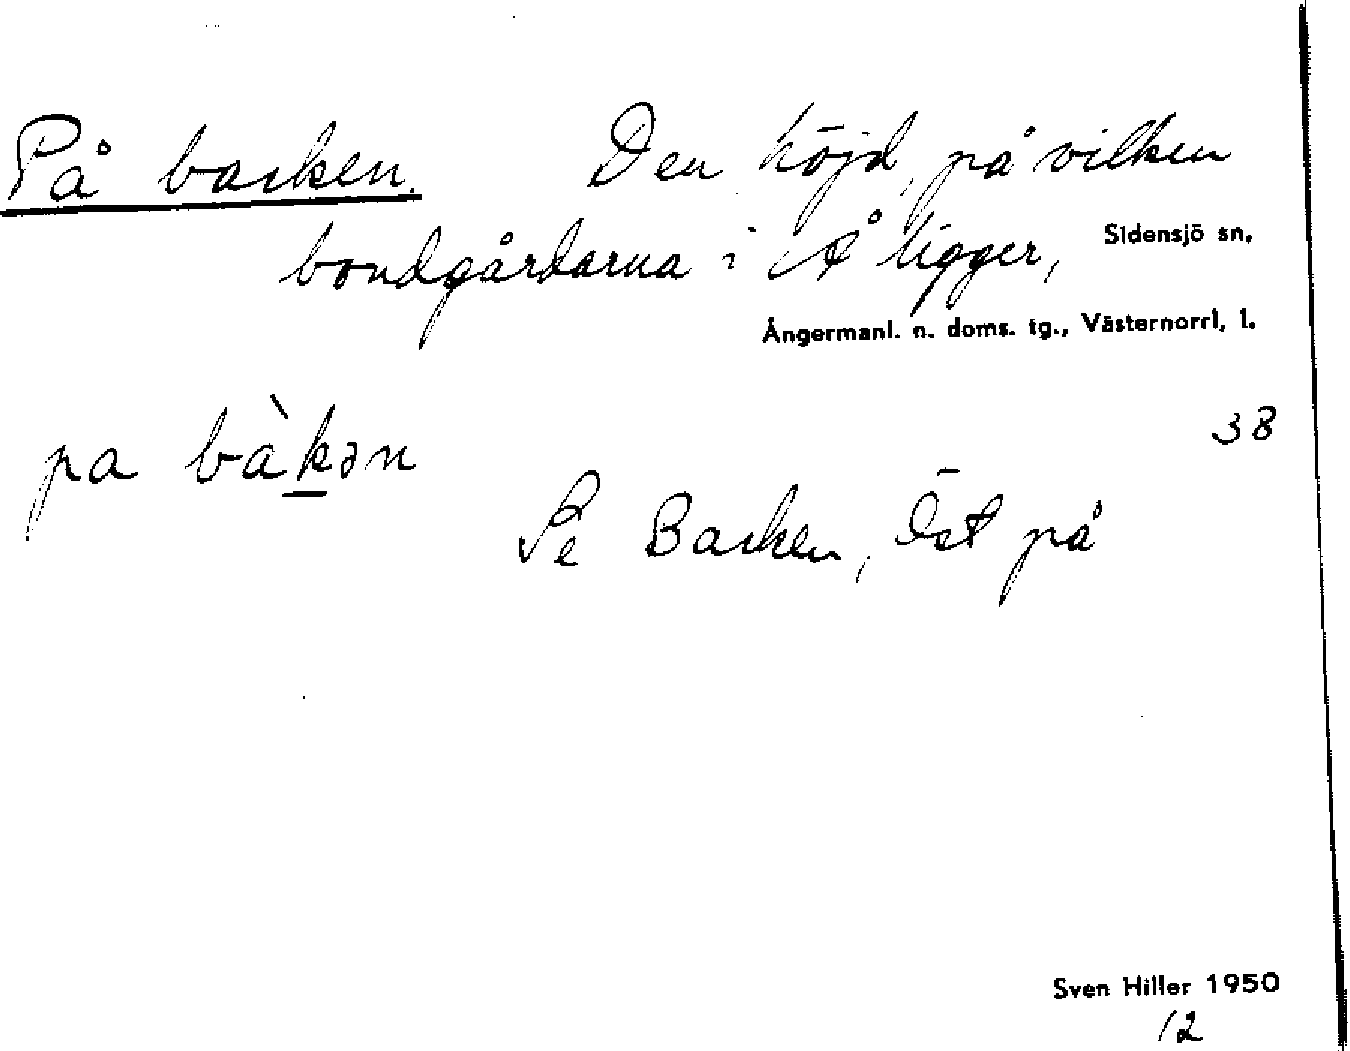 På backen. Den höjd, på vilken
bondgårdarna i Å ligger, Sidensjö sn,
Ångermanl. n. doms. tg., Västernorrl. l.
38
pa bàkən
Se Backen, Öst på
Sven Hiller 1950
12